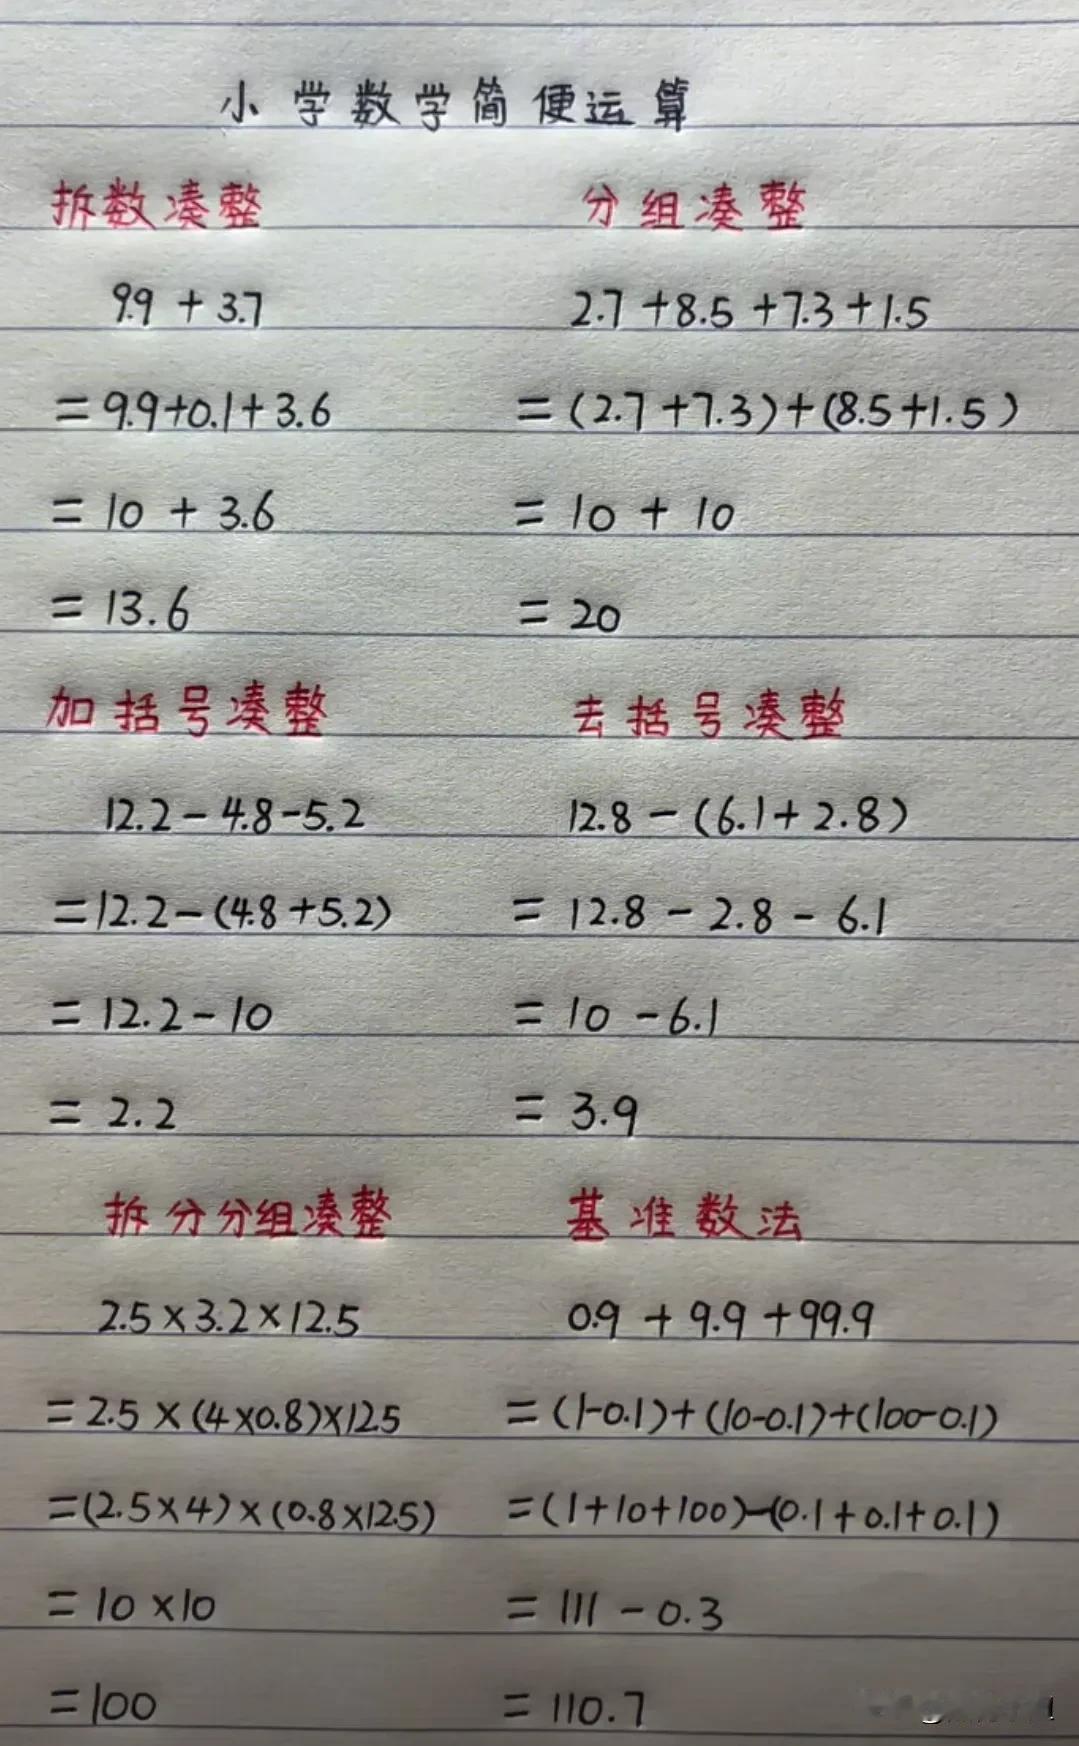 小学数学简便运算
拆数凑整
9.9 + 3.7
= 9.9+0.1+3.6
= 10 + 3.6
= 13.6
分组凑整
2.7+8.5+7.3+1.5
= (2.7+7.3)+(8.5+1.5)
= 10 + 10
= 20
加括号凑整
12.2-4.8-5.2
=12.2-(4.8+5.2)
= 12.2-10
= 2.2
去括号凑整
12.8-(6.1+2.8)
= 12.8-2.8-6.1
= 10-6.1
= 3.9
拆分分组凑整
2.5×3.2×12.5
=2.5×(4×0.8)×12.5
=(2.5×4)×(0.8×12.5)
= 10×10
=100
基准数法
0.9 + 9.9 + 99.9
= (1-0.1)+(10-0.1)+(100-0.1)
=(1+10+100)-(0.1+0.1+0.1)
= 111-0.3
= 110.7